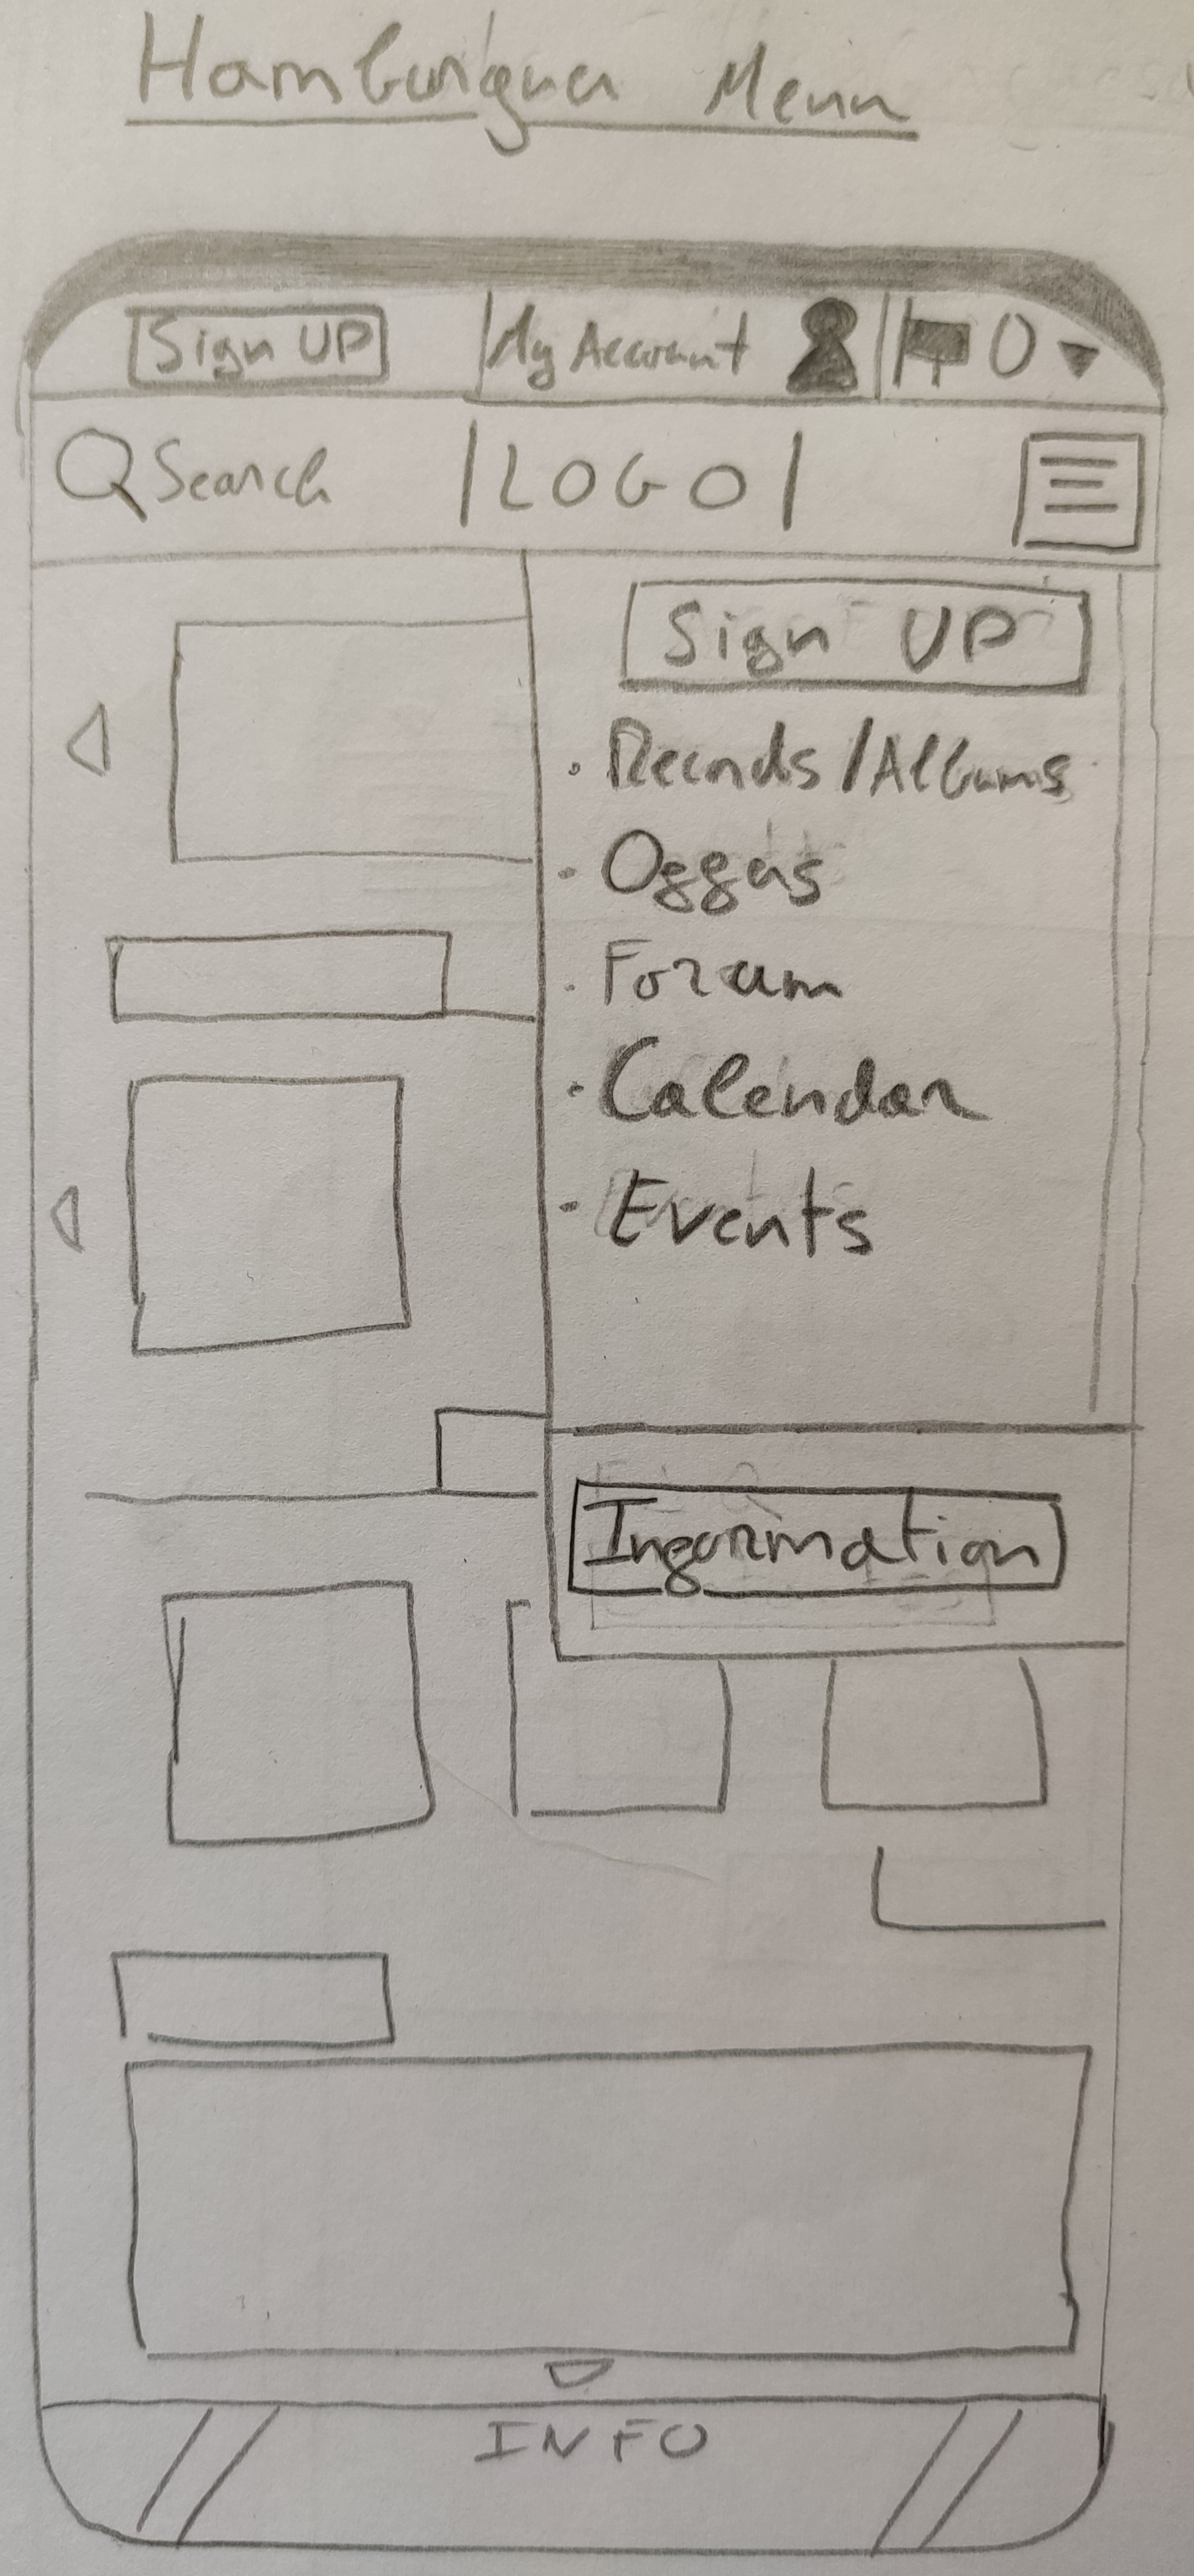 Hamburguer Menu
Sign UP My Account 0
Search LOGO
Sign UP
Records/Albums
Offers
Forum
Calendar
Events
Information
INFO